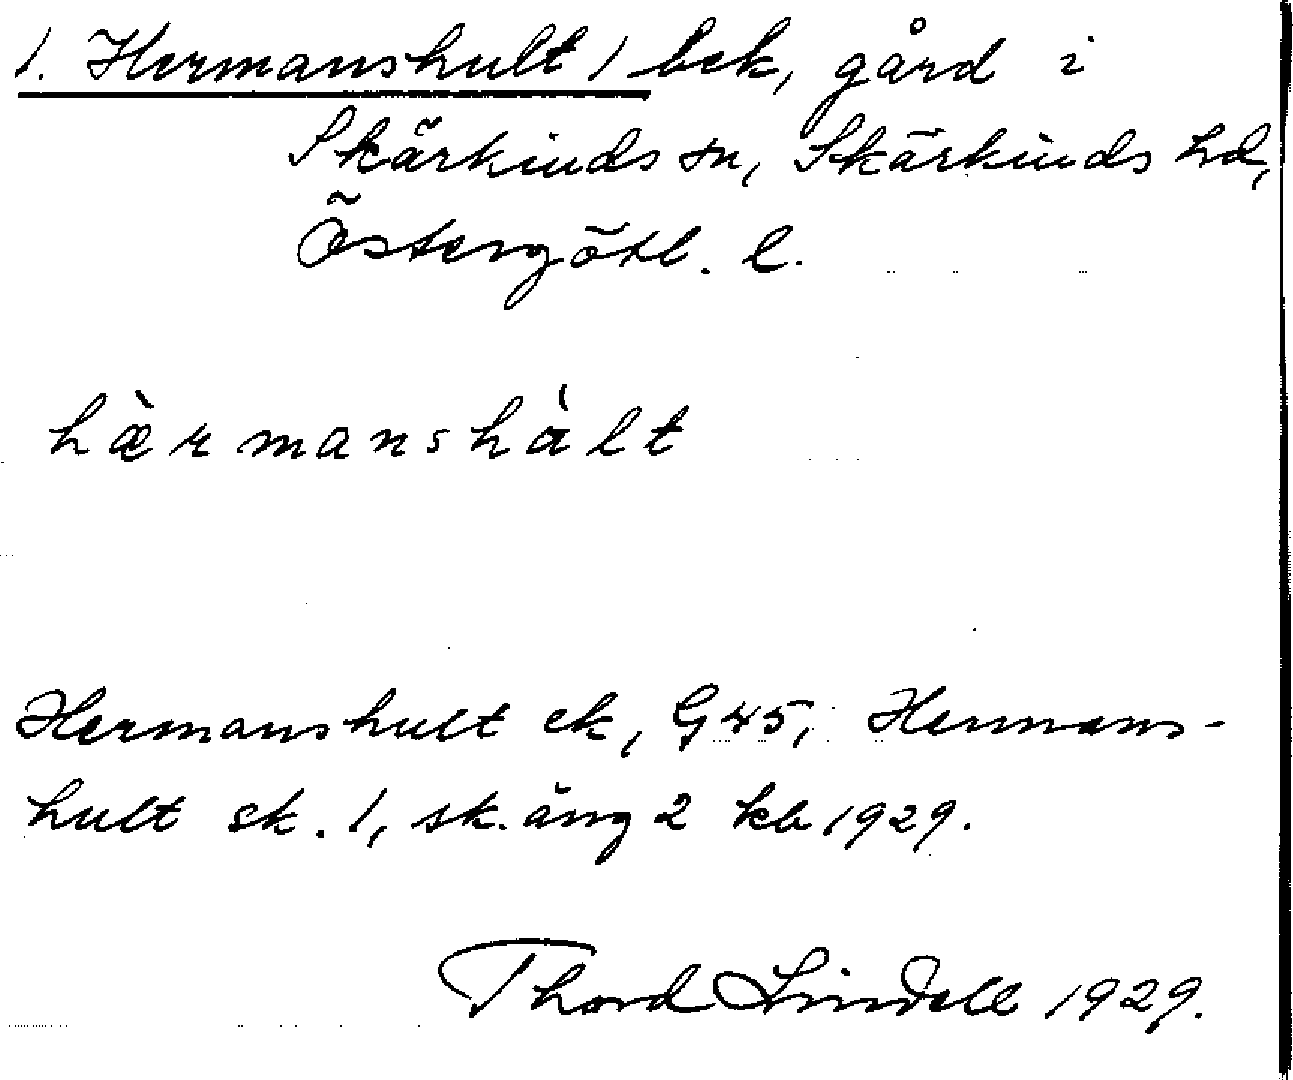 1. Hermanshult / bek, gård i
Skärkinds sn, Skärkinds hd,
Östergötl. l.
hæ̀rmanshàlt
Hermanshult ek, G45; Hermans-
hult sk. 1, sk. äng 2 kb 1929.
Thord Lindell 1929.